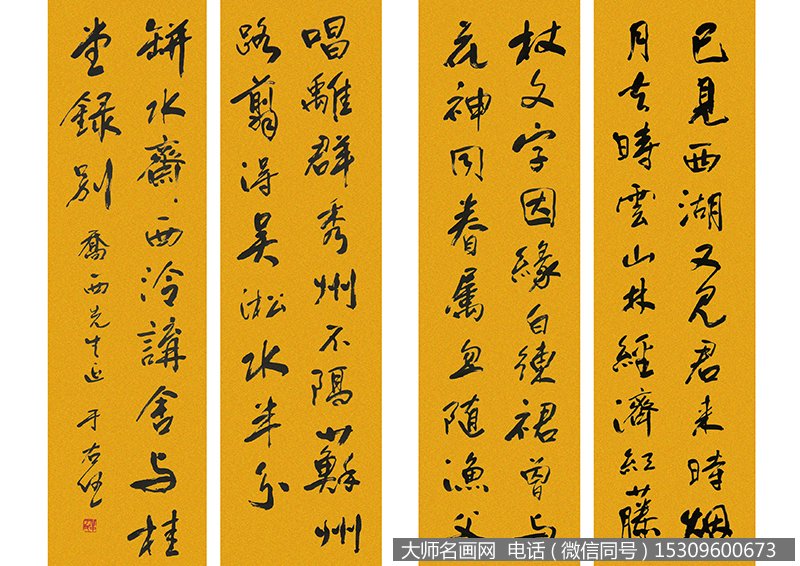 已見西湖又見君来時烟
月去時雲山林經濟紅藤
杖文字因緣白練裙曾与
花神同眷属忽随漁父
唱離群秀州不隔蘇州
路翦得吴淞水半分
缾水齋西泠講舍与桂
堂録别
喬西先生正 于右任
大师名画网 电话（微信同号）15309600673